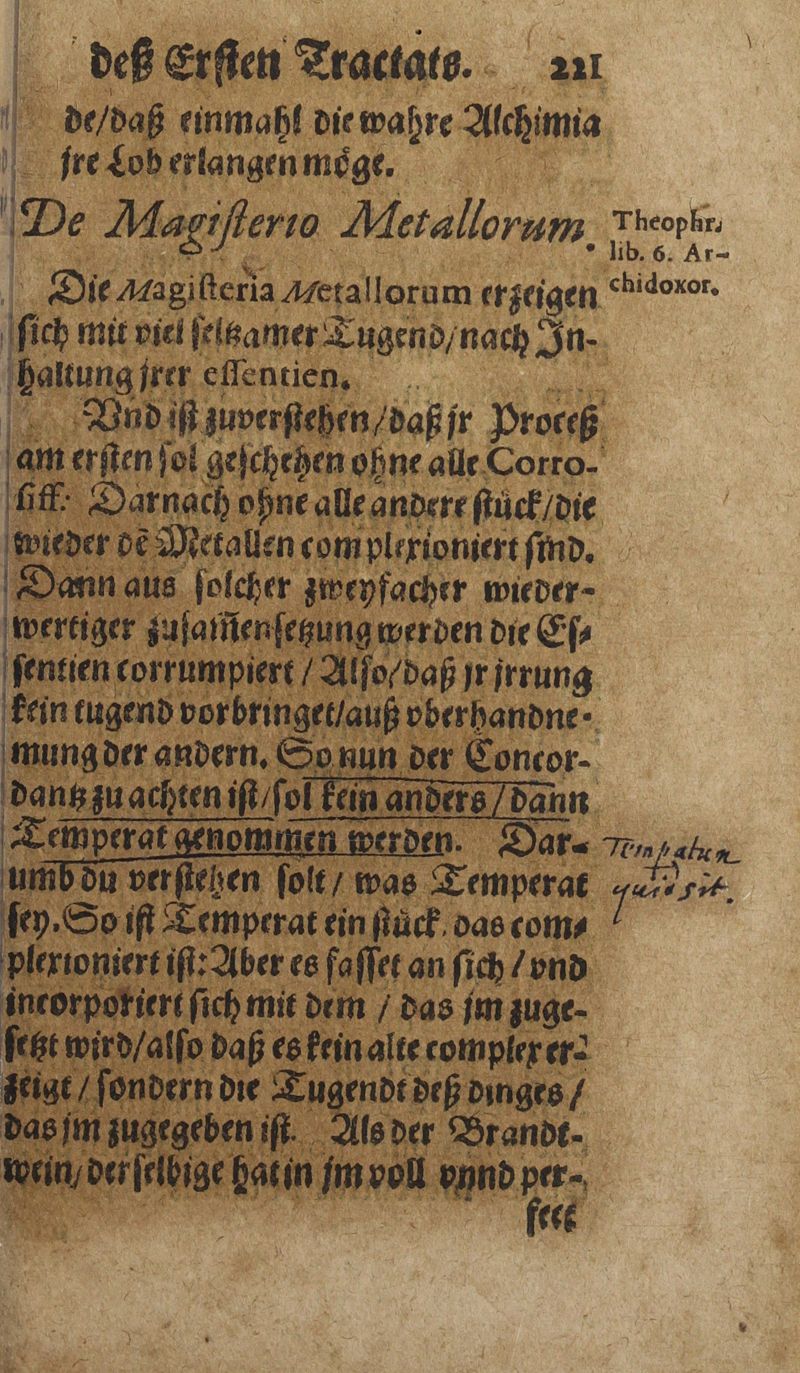 deß Ersten Tractats. 221
de/daß einmahl die wahre Alchimia
jre Lob erlangen möge.
De Magisterio Metallorum.
Theophr.
lib. 6. Ar-
chidoxor.
Die Magisteria Metallorum erzeigen
sich mit viel seltzamer Tugend/nach In-
haltung jrer essentien.
Vnd ist zuverstehen/daß jr Proceß
am ersten sol geschehen ohne alle Corro-
siff: Darnach ohne alle andere stück/die
wieder dẽ Metallen complexioniert sind.
Dann aus solcher zweyfacher wieder-
wertiger zusam̃ensetzung werden die Es-
sentien corrumpiert/Also/daß jr jrrung
kein tugend vorbringet/auß vberhandne-
mung der andern. So nun der Concor-
dantz zu achten ist/sol kein anders/dann
Temperat genommen werden. Dar-
umb du verstehen solt/was Temperat
sey. So ist Temperat ein stück, das com-
plexioniert ist: Aber es fasset an sich/vnd
incorporiert sich mit dem/das jm zuge-
setzt wird/also daß es kein alte complex er-
zeigt/sondern die Tugendt deß dinges/
das jm zugegeben ist. Als der Brandt-
wein/derselbige hat in jm voll vnnd per-
fect
Tempatum
quid sit.